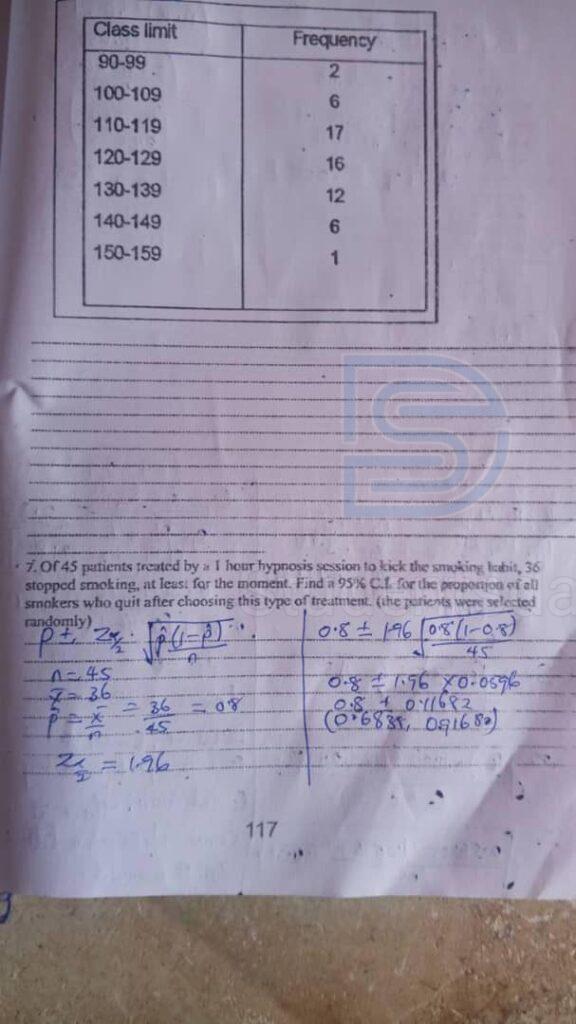 Class limit Frequency
90-99 2
100-109 6
110-119 17
120-129 16
130-139 12
140-149 6
150-159 1
7. Of 45 patients treated by a 1 hour hypnosis session to kick the smoking habit, 36
stopped smoking, at least for the moment. Find a 95% C.I. for the proportion of all
smokers who quit after choosing this type of treatment. (the patients were selected
randomly)
p ± Zα/2 · √p̂(1-p̂)/n
n = 45
x = 36
p̂ = x/n = 36/45 = 0.8
Zα/2 = 1.96
0.8 ± 1.96 √0.8(1-0.8)/45
0.8 ± 1.96 × 0.0596
0.8 ± 0.11682
117